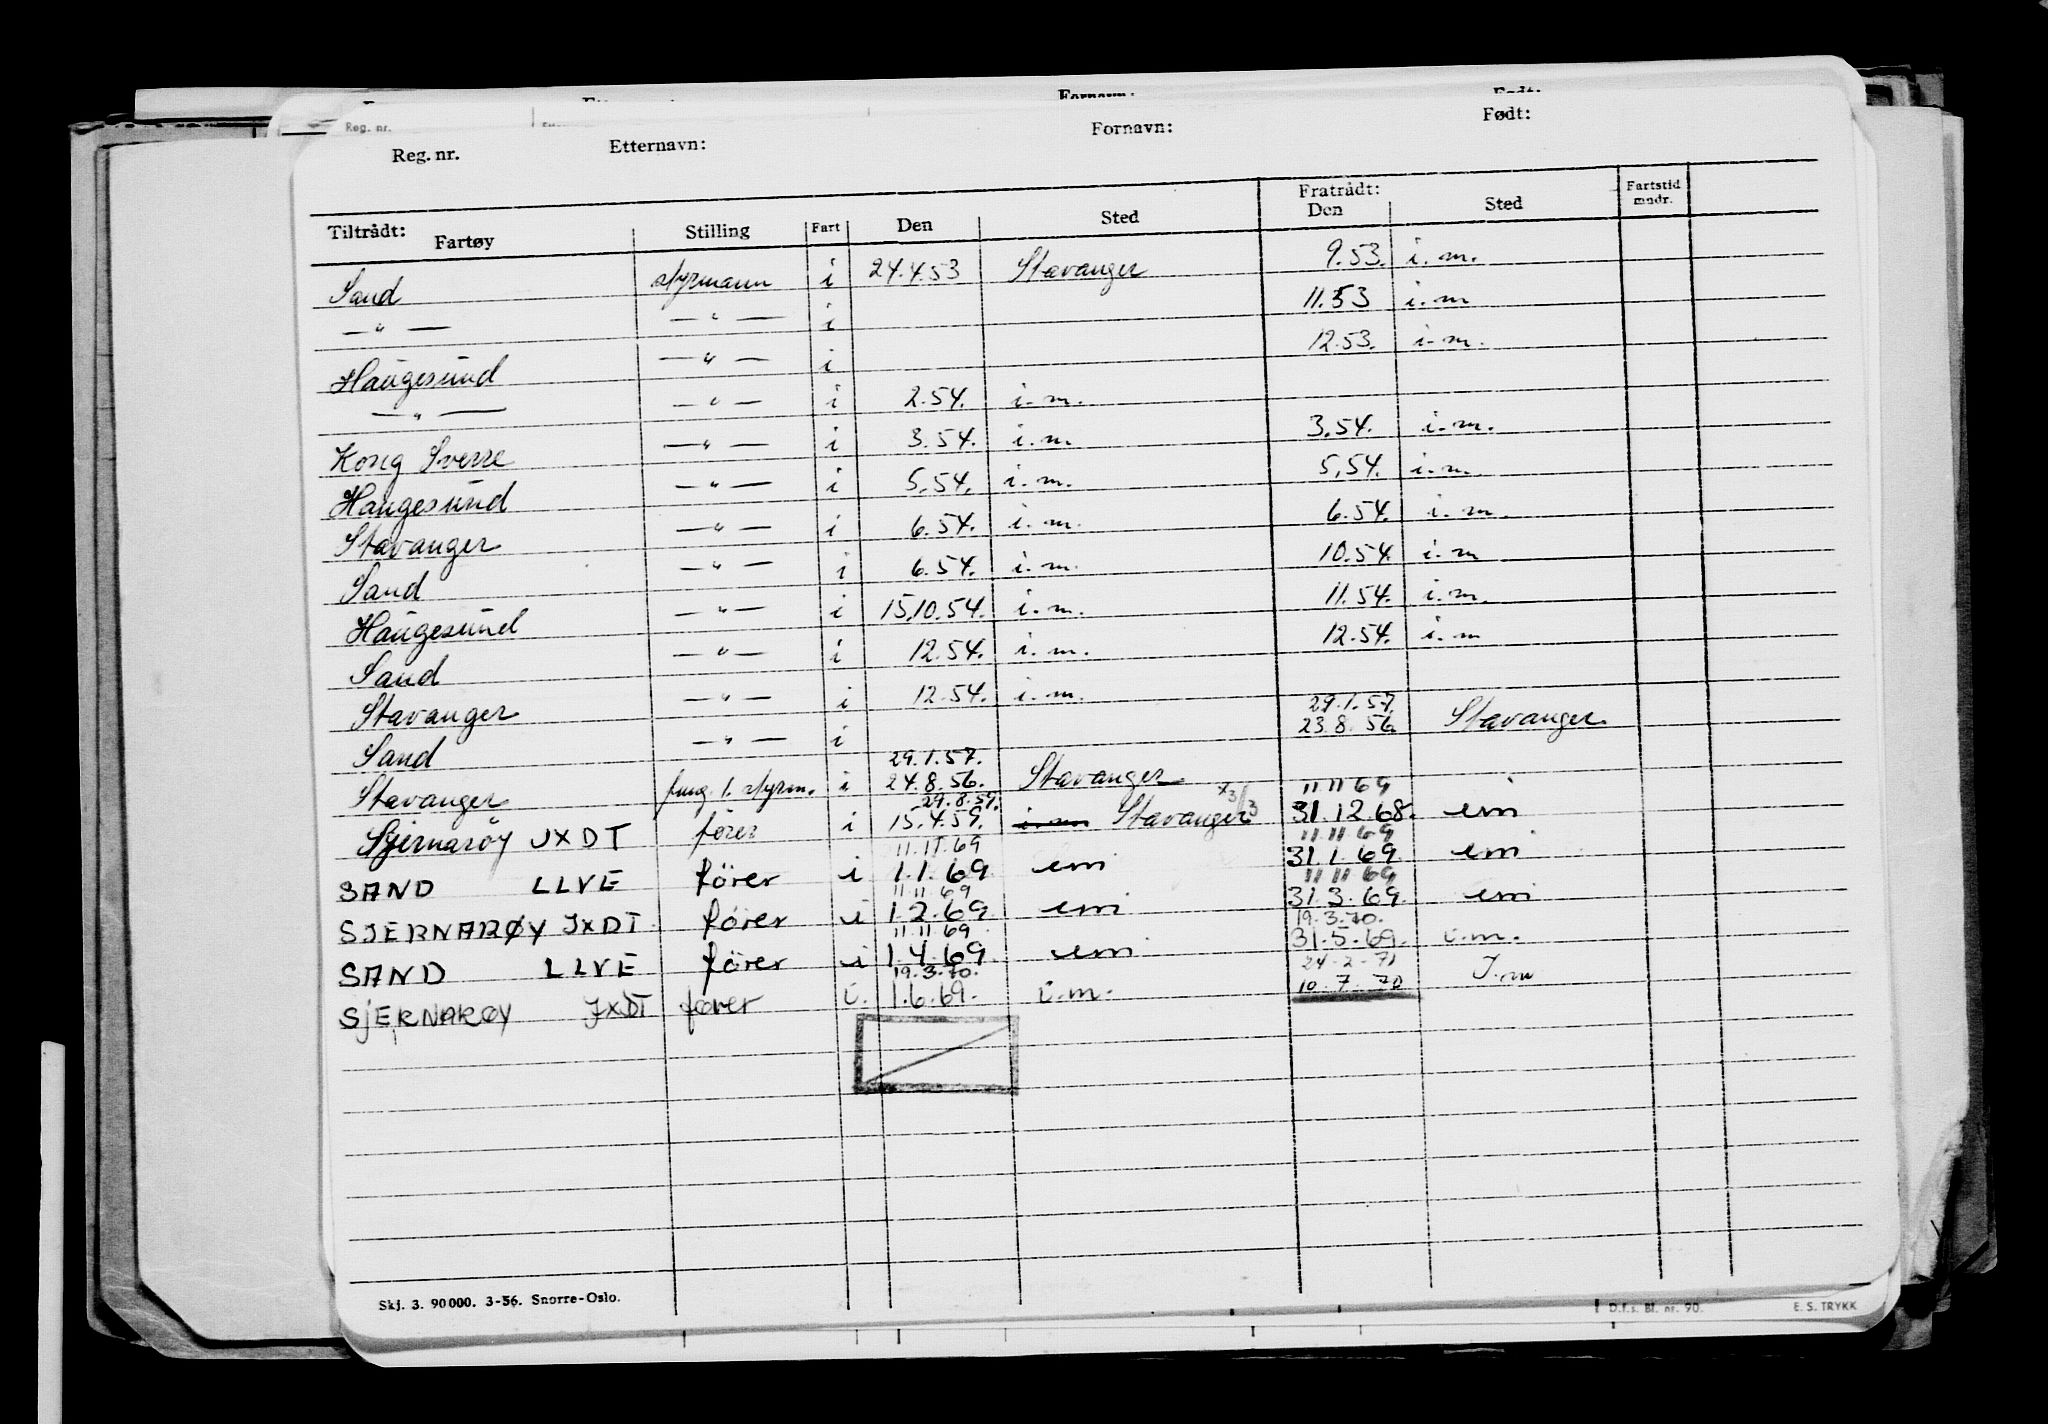 Fornavn: Født:
Reg. nr.
Reg. nr. Etternavn: Fornavn: Født:
Tiltrådt: Fartøy Stilling Fart Den Sted Fratrådt: Den Sted Fartstid mndr.
Sand styrmann i 24.4.53 Stavanger 9.53. i.m.
—"— —"— i 11.53 i.m
Haugesund —"— i 12.53. i.m.
—"— —"— i 2.54. i.m.
Kong Sverre —"— i 3.54. i.m. 3.54. i.m.
Haugesund —"— i 5.54. i.m. 5.54. i.m.
Stavanger —"— i 6.54. i.m. 6.54. i.m.
Sand —"— i 6.54. i.m. 10.54. i.m
Haugesund —"— i 15.10.54. i.m. 11.54. i.m.
Sand —"— i 12.54. i.m. 12.54. i.m
Stavanger —"— i 12.54. i.m.
29.1.57.
Sand —"— i 23.8.56. Stavanger
29.1.57.
Stavanger fung. 1. styrm. i 24.8.56. Stavanger
29.8.59. x3/3 11 11 69
Sjernarøy JXDT fører i 15.4.59. i.m Stavanger 31.12.68. em
11.11.69 11.11.69
SAND LLVE fører i 1.1.69 em 31.1.69. em
11 11 69 11 11 69
SJERNARØY JXDT fører i 1.2.69. em 31.3.69. em
11.11 69 19.3.70.
SAND LLVE fører i 1.4.69 em 31.5.69. i.m.
19.3.70. 24-2-71
SJERNARØY JXDT fører i. 1.6.69. i.m. 10.7.70 I.m
Skj. 3. 90 000. 3-56. Snorre-Oslo. D.f.s. Bl. nr. 90. E. S. TRYKK